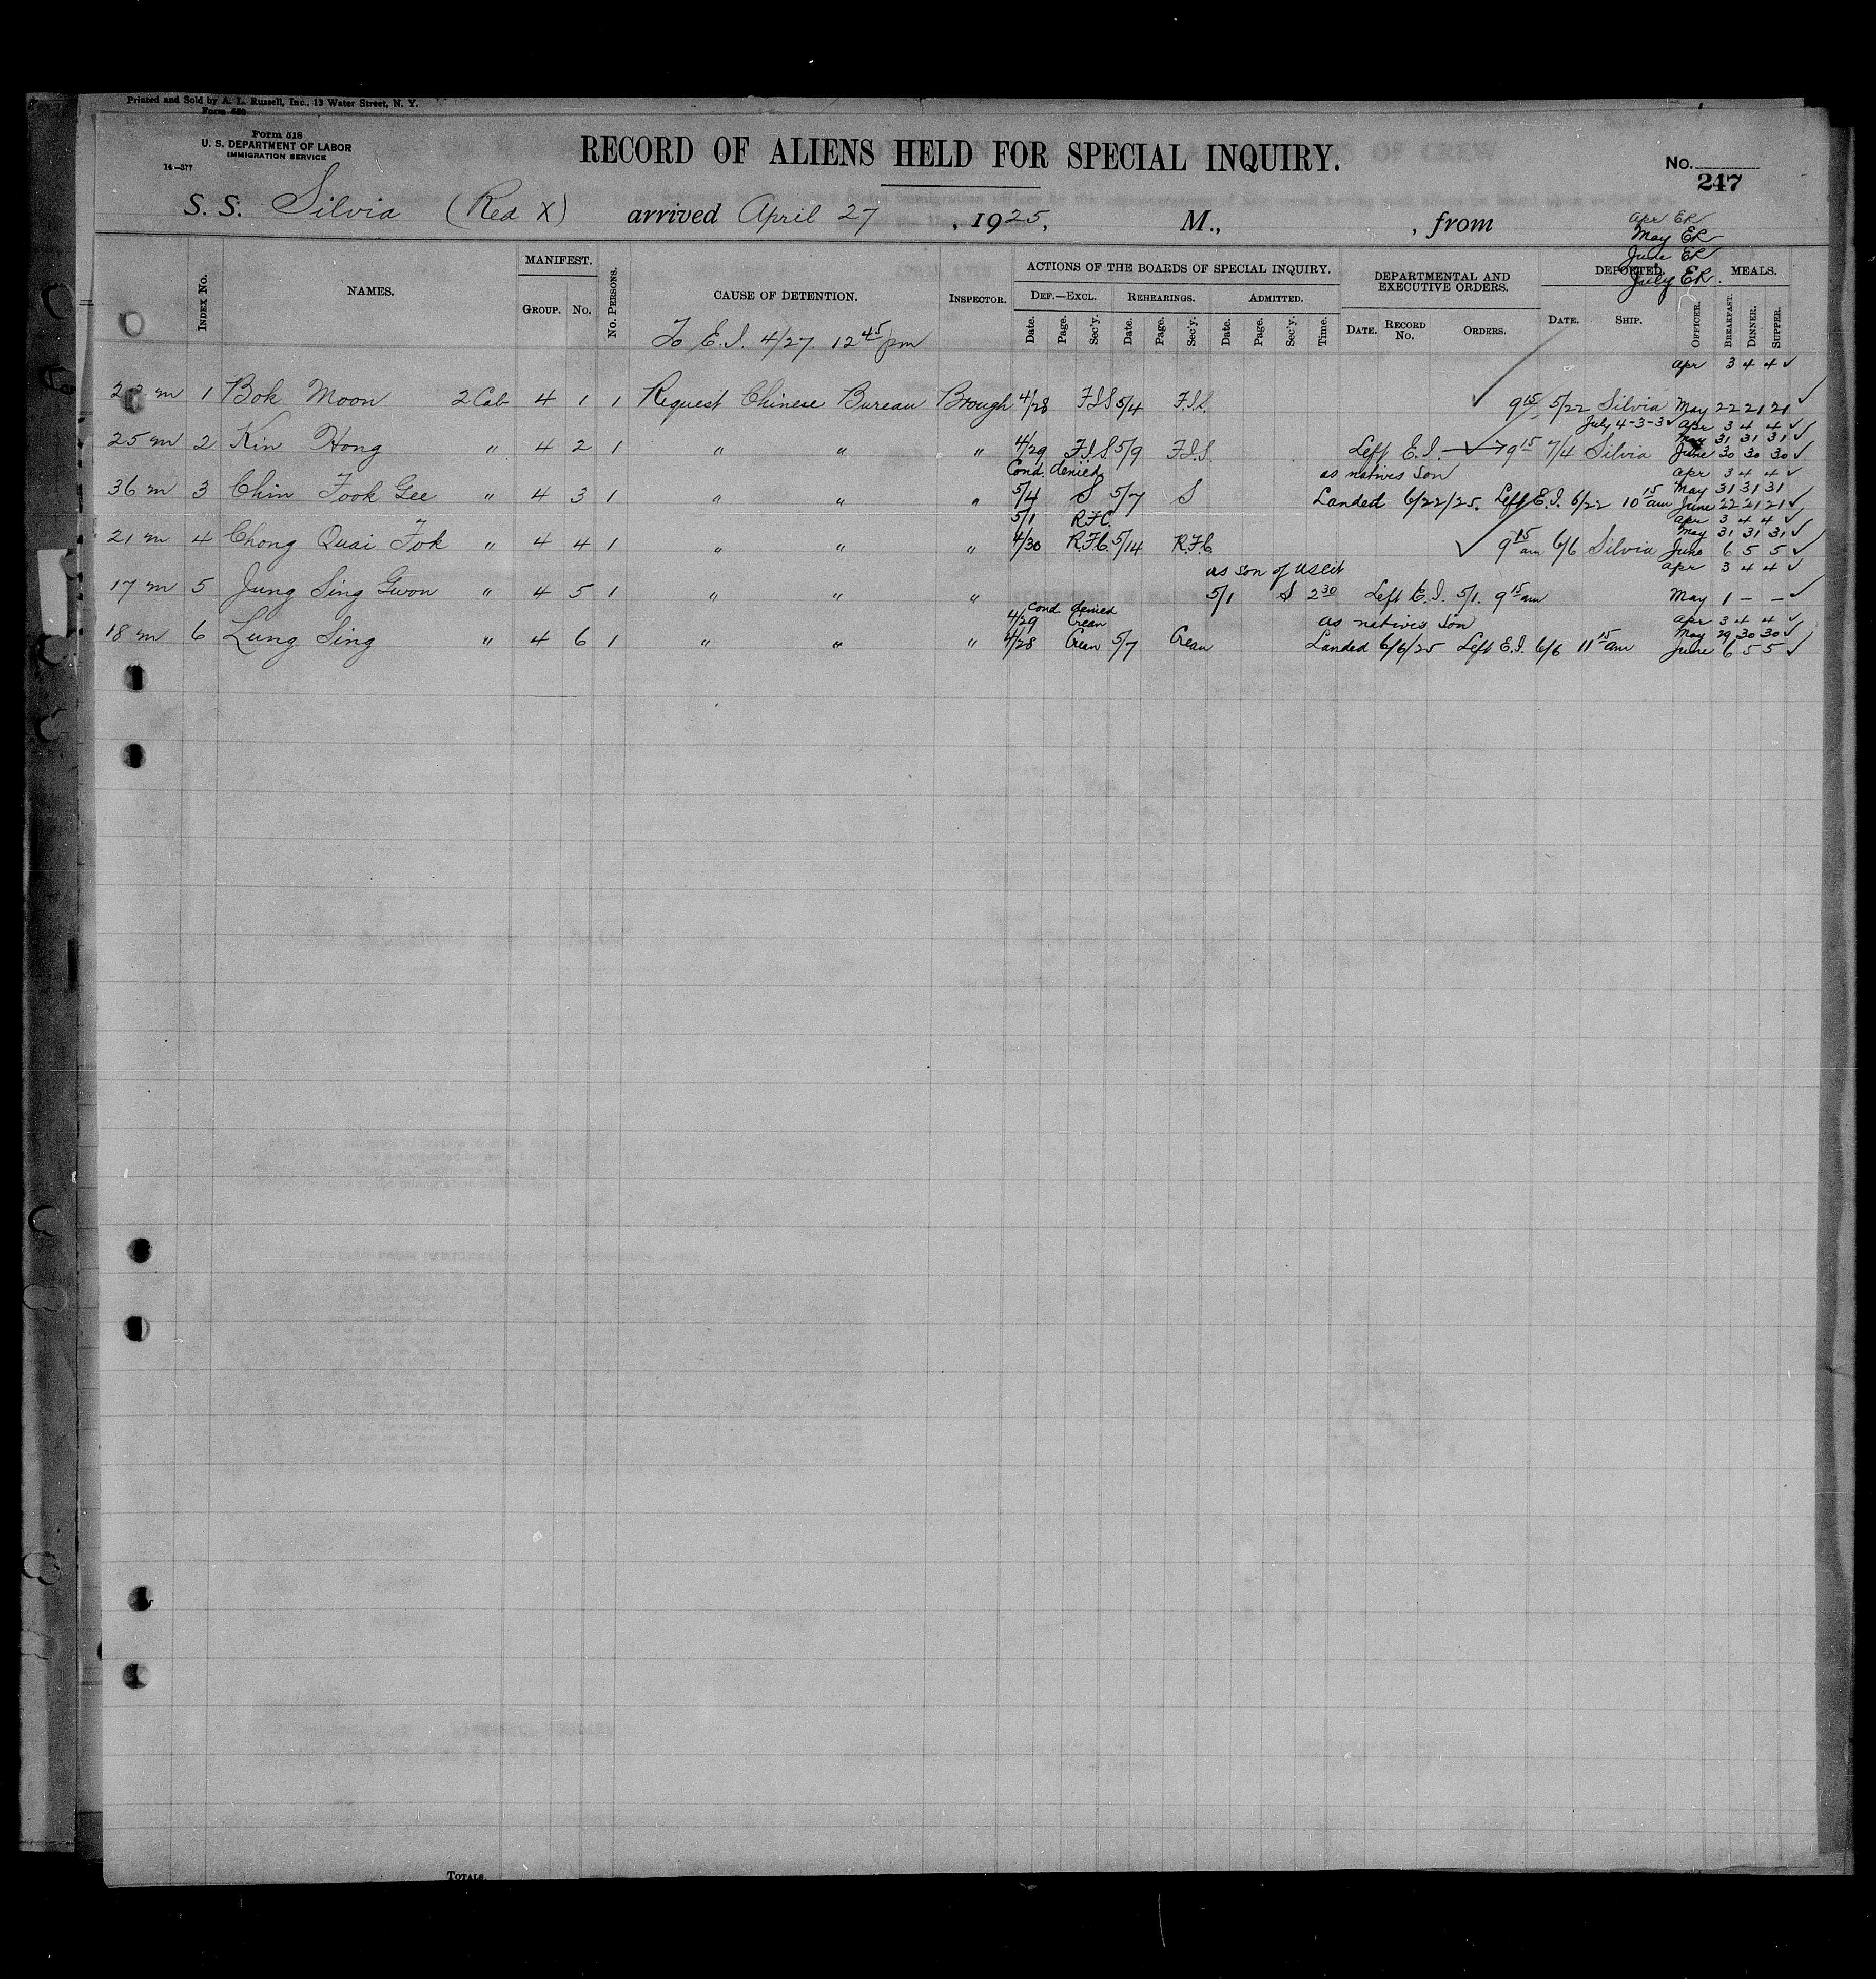 Printed and Sold by A. L. Russell, Inc., 13 Water Street, N. Y.
Form 518
U. S. DEPARTMENT OF LABOR
IMMIGRATION SERVICE
14—377
RECORD OF ALIENS HELD FOR SPECIAL INQUIRY.
No.
247
S. S. Silvia (Red X) arrived April 27, 1925, M., , from
Apr ER
May ER
June ER
July ER.
INDEX NO. NAMES. MANIFEST. GROUP. NO. NO. PERSONS. CAUSE OF DETENTION. INSPECTOR. ACTIONS OF THE BOARDS OF SPECIAL INQUIRY. DEPARTMENTAL AND EXECUTIVE ORDERS. DEPORTED. MEALS.
DEF.—EXCL. REHEARINGS. ADMITTED.
Date. Page. Sec'y. Date. Page. Sec'y. Date. Page. Sec'y. Time. DATE. RECORD NO. ORDERS. DATE. SHIP. OFFICER. BREAKFAST. DINNER. SUPPER.
To E.I. 4/27 12 45 pm
Apr 3 4 4 ✓
m 1 Bok Moon 2 Cab 4 1 1 Request Chinese Bureau Brough 4/28 F.I.S 5/4 F.I.S. ✓ 9 15 5/22 Silvia May 22 21 21 ✓
July 4-3-3 ✓ Apr 3 4 4 ✓
May 31 31 31 ✓
25 m 2 Kin Hong " 4 2 1 " " " 4/29 F.I.S. 5/9 F.I.S. Left E.I. 9 15 7/4 Silvia June 30 30 30 ✓
Cond. denied as natives son Apr 3 4 4 ✓
May 31 31 31
36 m 3 Chin Fook Gee " 4 3 1 " " " 5/4 S 5/7 S Landed 6/22/25. Left E.I. 6/22 10 15 am June 22 21 21 ✓
5/1 R.F.C. Apr 3 4 4 ✓
May 31 31 31 ✓
21 m 4 Chong Quai Fok " 4 4 1 " " " 4/30 R.F.C. 5/14 R.F.C ✓ 9 15 am 6/6 Silvia June 6 5 5 ✓
as son of US cit Apr 3 4 4 ✓
17 m 5 Jung Sing Gwon " 4 5 1 " " " 5/1 S 2 30 Left E.I. 5/1. 9 15 am May 1 – – ✓
Cond denied
4/29 Crean as natives son Apr 3 4 4 ✓
May 29 30 30 ✓
18 m 6 Lung Sing " 4 6 1 " " " 4/28 Crean 5/7 Crean Landed 6/6/25 Left E.I. 6/6 11 15 am June 6 5 5 ✓
TOTALS.